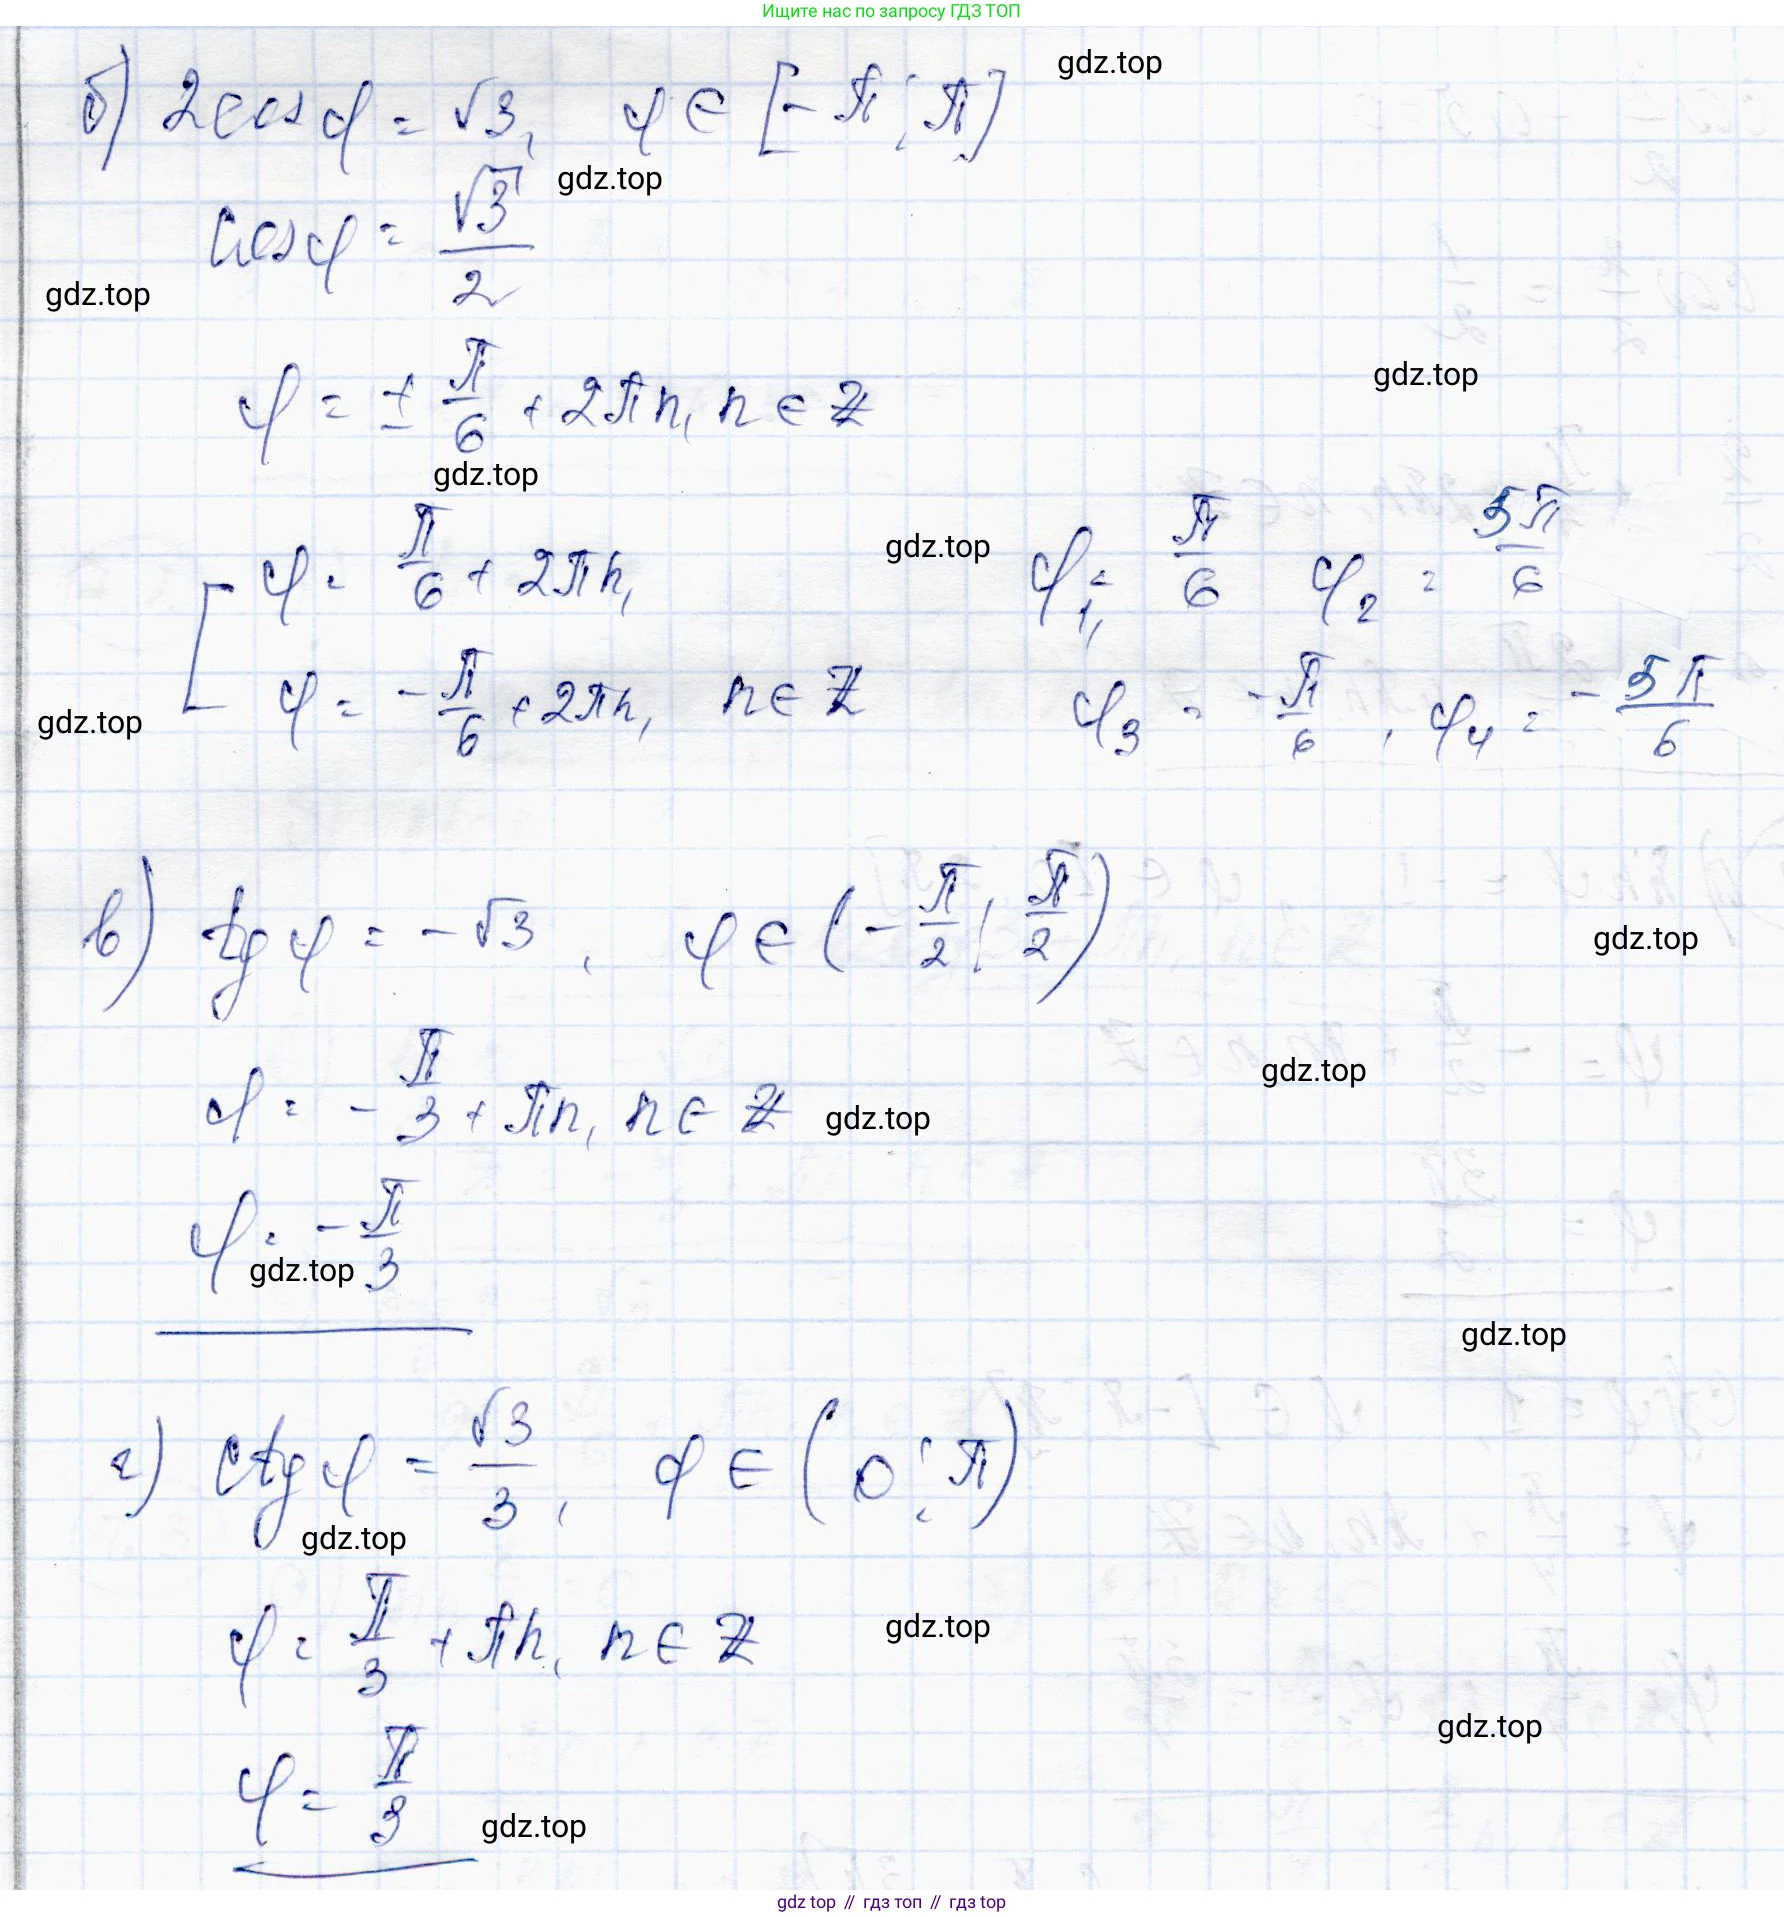 Ищите нас по запросу ГДЗ ТОП
б) 2cos φ = √3, φ ∈ [-π; π]
gdz.top
cos φ = √3/2
gdz.top
gdz.top
φ = ± π/6 + 2πn, n ∈ Z
gdz.top
gdz.top
φ = π/6 + 2πn,
gdz.top
φ₁ = π/6 φ₂ = 5π/6
φ = -π/6 + 2πn, n ∈ Z
φ₃ = -π/6, φ₄ = -5π/6
gdz.top
в) tg φ = -√3, φ ∈ (-π/2; π/2)
gdz.top
φ = -π/3 + πn, n ∈ Z
gdz.top
gdz.top
φ = -π/3
gdz.top
gdz.top
г) ctg φ = √3/3, φ ∈ (0; π)
gdz.top
φ = π/3 + πn, n ∈ Z
gdz.top
gdz.top
φ = π/3
gdz.top
gdz top // гдз топ // гдз top